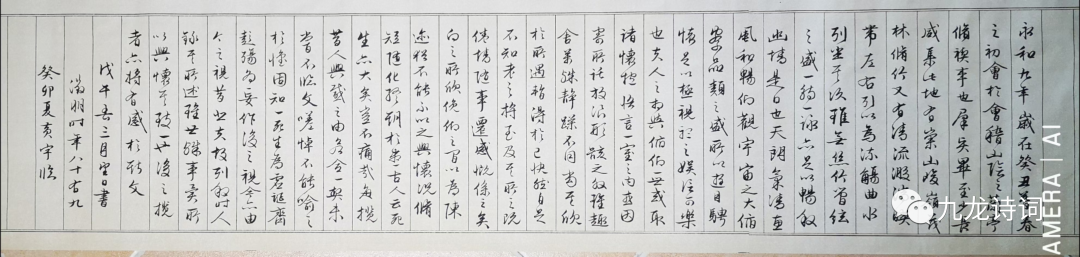 永和九年歲在癸丑暮春
之初會於會稽山陰之蘭亭
脩禊事也群賢畢至少長
咸集此地有崇山峻嶺茂
林脩竹又有清流激湍映
帶左右引以為流觴曲水
列坐其次雖無絲竹管絃
之盛一觴一詠亦足以暢叙
幽情是日也天朗氣清惠
風和暢仰觀宇宙之大俯
察品類之盛所以遊目騁
懷足以極視聽之娛信可樂
也夫人之相與俯仰一世或取
諸懷抱悟言一室之內或因
寄所託放浪形骸之外雖趣
舍萬殊靜躁不同當其欣
於所遇暫得於己快然自足
不知老之將至及其所之既
倦情隨事遷感慨係之矣
向之所欣俛仰之間以為陳
迹猶不能不以之興懷況脩
短隨化終期於盡古人云死
生亦大矣豈不痛哉每攬
昔人興感之由若合一契未
嘗不臨文嗟悼不能喻之
於懷固知一死生為虛誕齊
彭殤為妄作後之視今亦由
今之視昔悲夫故列叙時人
錄其所述雖世殊事異所
以興懷其致一也後之攬
者亦將有感於斯文
戊午春三月望日書
徵明時年八十有九
癸卯夏亥宇臨
九龙诗词
AMERA | AI